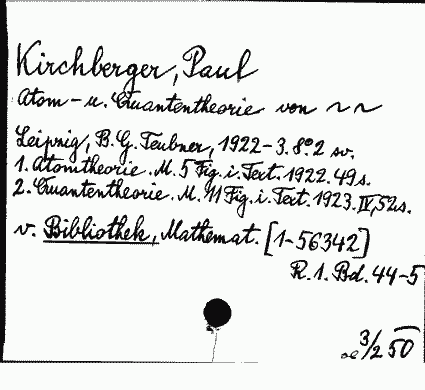 Kirchberger, Paul
Atom- u. Quantentheorie von ~ ~
Leipzig, B. G. Teubner, 1922-3. 8° 2 sv.
1. Atomtheorie. M. 5 Fig. i. Text. 1922. 49 s.
2. Quantentheorie. M. 11 Fig. i. Text. 1923. IV, 52 s.
v. Bibliothek, Mathemat. [1-56342]
R. 1. Bd. 44-5
3/2 50